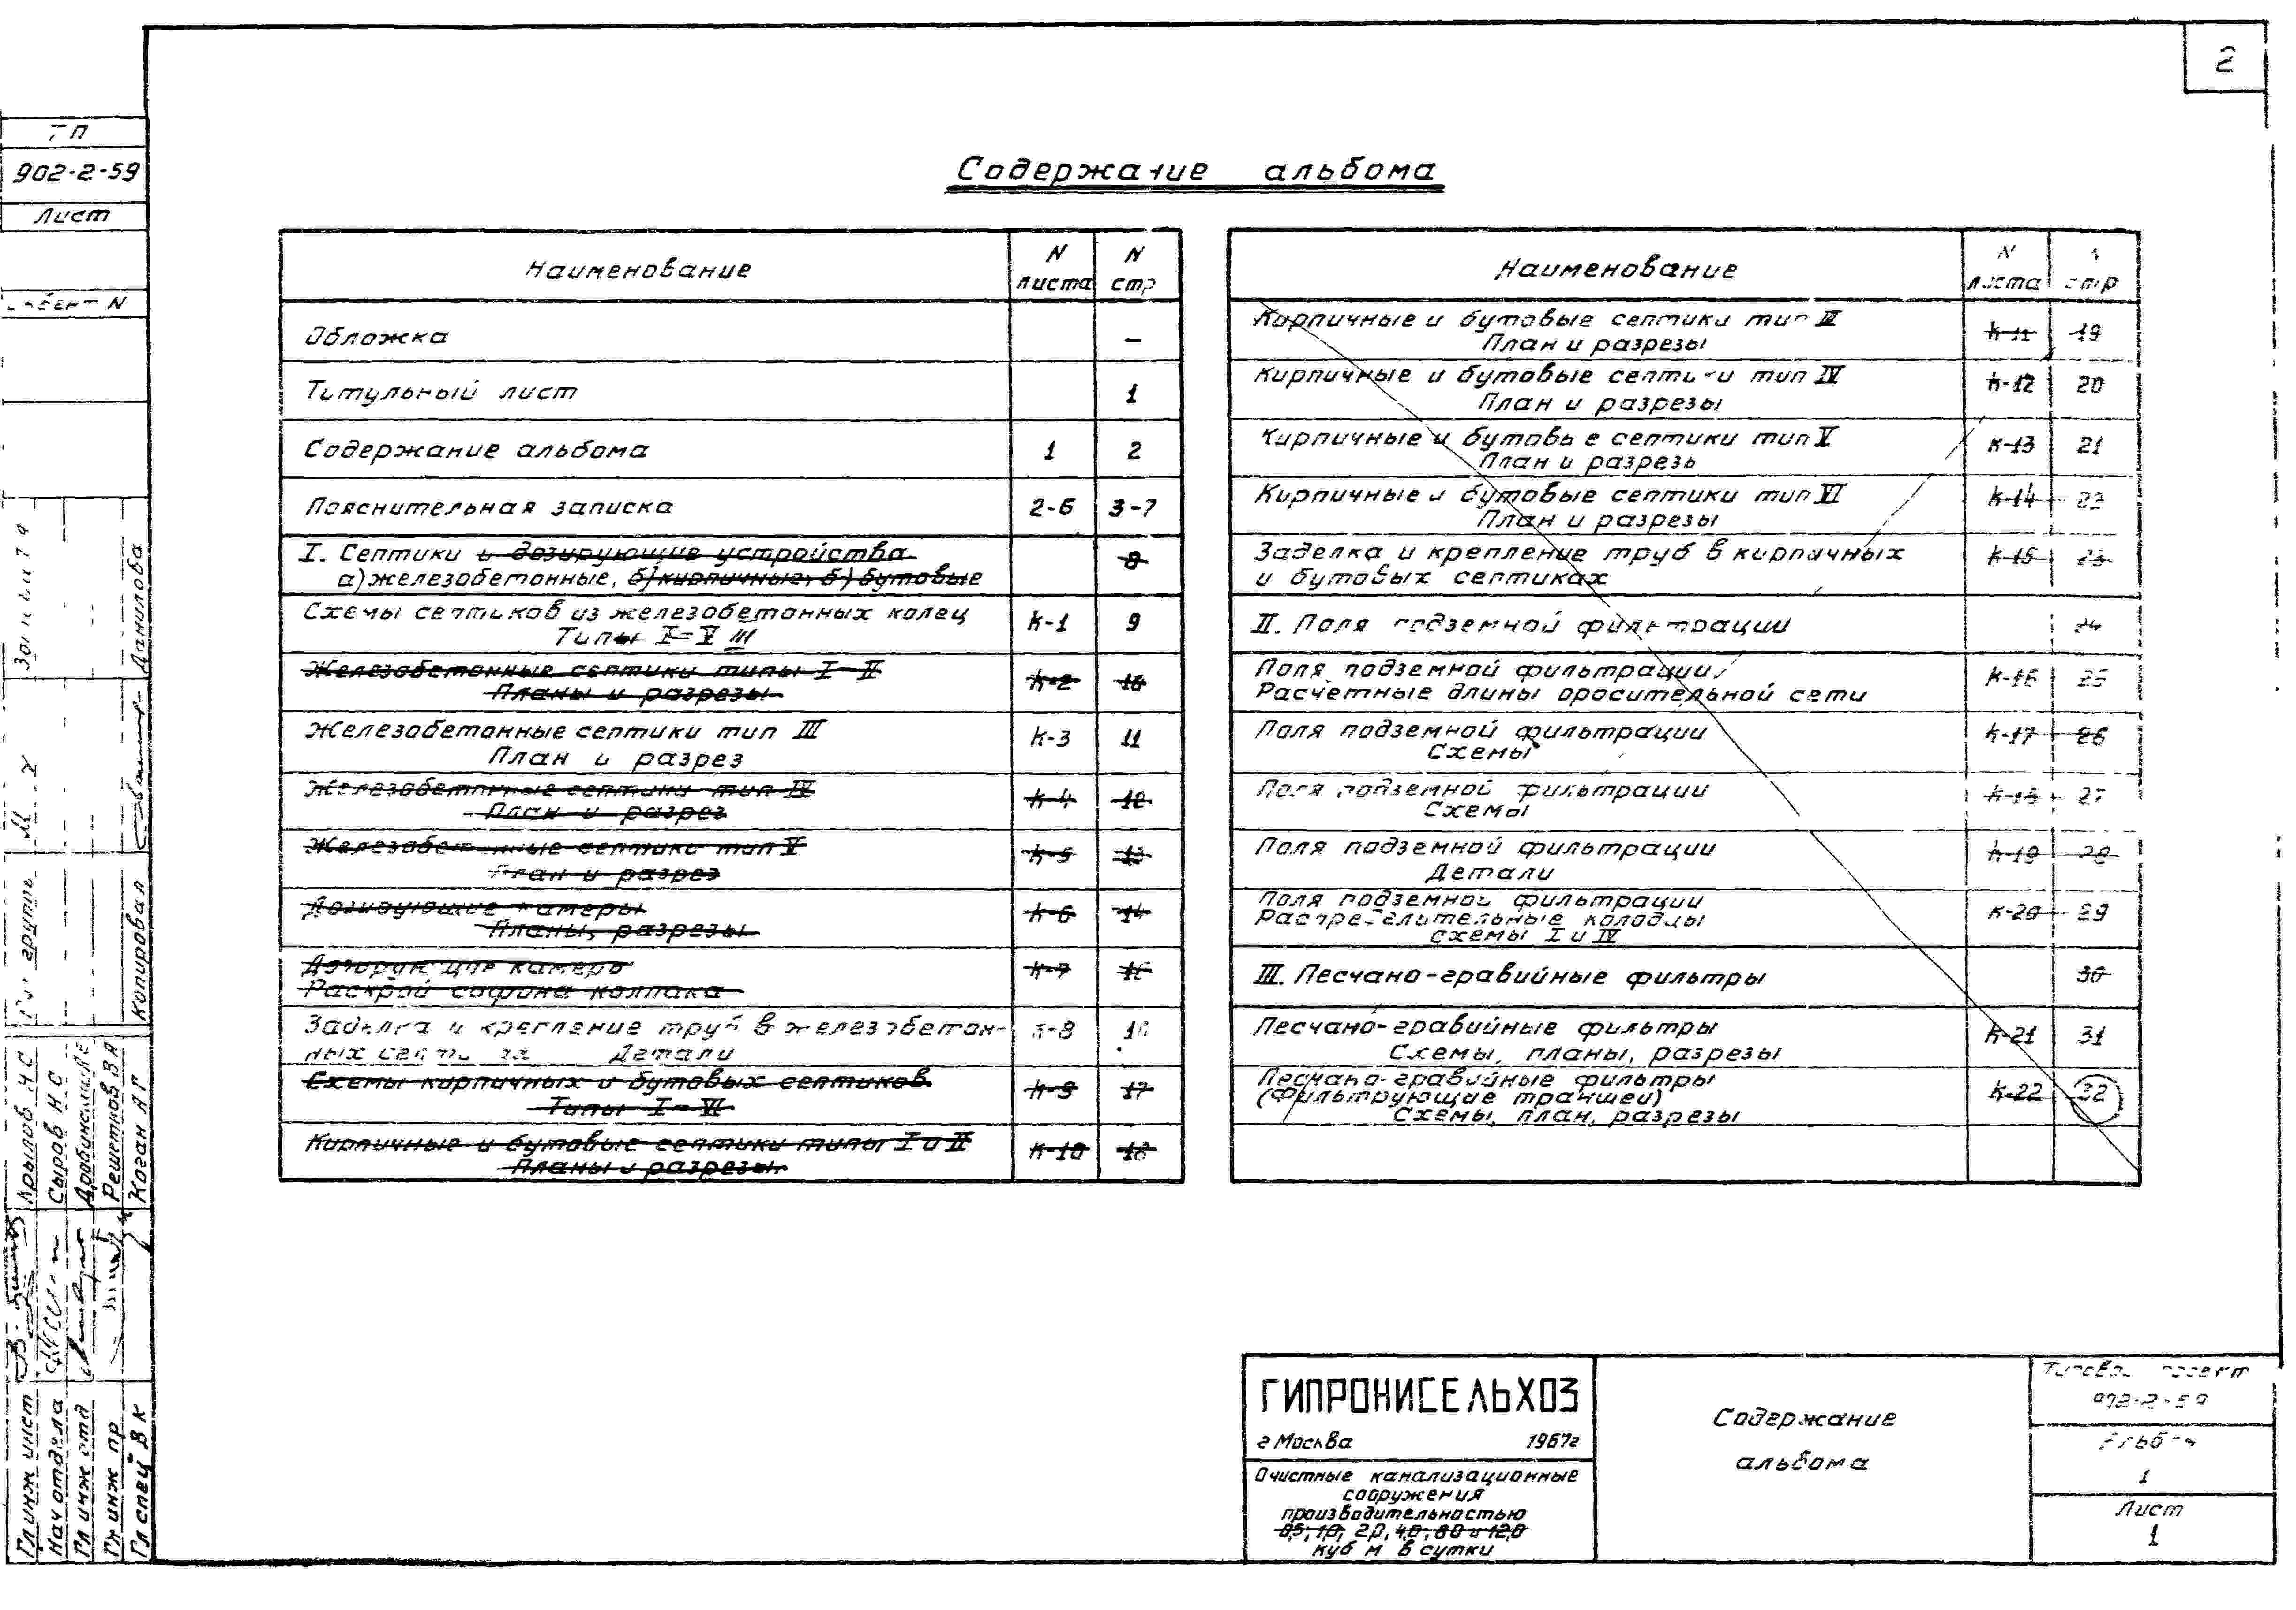 2
ТП
902-2-59
Лист
Содержание альбома
Наименование
N листа
N стр
Обложка —
Титульный лист 1
Содержание альбома 1 2
Пояснительная записка 2-6 3-7
I. Септики и дозирующие устройства
а) железобетонные, б) кирпичные, б) бутовые 8
Схемы септиков из железобетонных колец
Типы I-V III K-1 9
Железобетонные септики типы I-II
Планы и разрезы K-2 10
Железобетонные септики тип III
План и разрез K-3 11
Железобетонные септики тип IV
План и разрез K-4 12
Железобетонные септики тип V
План и разрез K-5 13
Дозирующие камеры
Планы, разрезы K-6 14
Дозирующие камеры
Раскрой сифона колпака K-7 15
Заделка и крепление труб в железобетон-
ных септиках Детали K-8 16
Схемы кирпичных и бутовых септиков
Типы I-VI K-9 17
Кирпичные и бутовые септики типы I и II
Планы и разрезы K-10 18
Наименование
N листа
стр
Кирпичные и бутовые септики тип III
План и разрезы K-11 19
Кирпичные и бутовые септики тип IV
План и разрезы K-12 20
Кирпичные и бутовые септики тип V
План и разрезы K-13 21
Кирпичные и бутовые септики тип VI
План и разрезы K-14 22
Заделка и крепление труб в кирпичных
и бутовых септиках K-15 23
II. Поля подземной фильтрации 24
Поля подземной фильтрации
Расчётные длины оросительной сети K-16 25
Поля подземной фильтрации
Схемы K-17 26
Поля подземной фильтрации
Схемы K-18 27
Поля подземной фильтрации
Детали K-19 28
Поля подземной фильтрации
Распределительные колодцы
схемы I и IV K-20 29
III. Песчано-гравийные фильтры 30
Песчано-гравийные фильтры
Схемы, планы, разрезы K-21 31
Песчано-гравийные фильтры
(Фильтрующие траншеи)
Схемы, план, разрезы K-22 32
Данилова
Копировал
Гл инж инст Крылов Н С
Нач отдела Сыров Н С
Гл инж отд
Гл инж пр Решетков В А
Гл спец В К Коган А Г
ГИПРОНИСЕЛЬХОЗ
г Москва 1967г
Очистные канализационные
сооружения
производительностью
0,5, 1,0, 2,0, 4,0, 8,0 и 12,0
куб м в сутки
Содержание
альбома
Типовой проект
902-2-59
Альбом
1
Лист
1